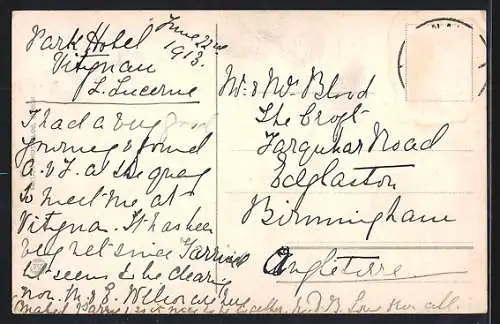 Park Hotel
Vitznau
L. Lucerne
June 22nd
1913.
I had a very good
journey & found
A. & F. at the quay
to meet me at
Vitznau. It has been
very wet since I arrived
but seems to be clearing
now. M. & E. Wilson are
Mabel
Love from all.
Mr & Mrs Blood
The Croft
Farquhar Road
Edgbaston
Birmingham
Angleterre